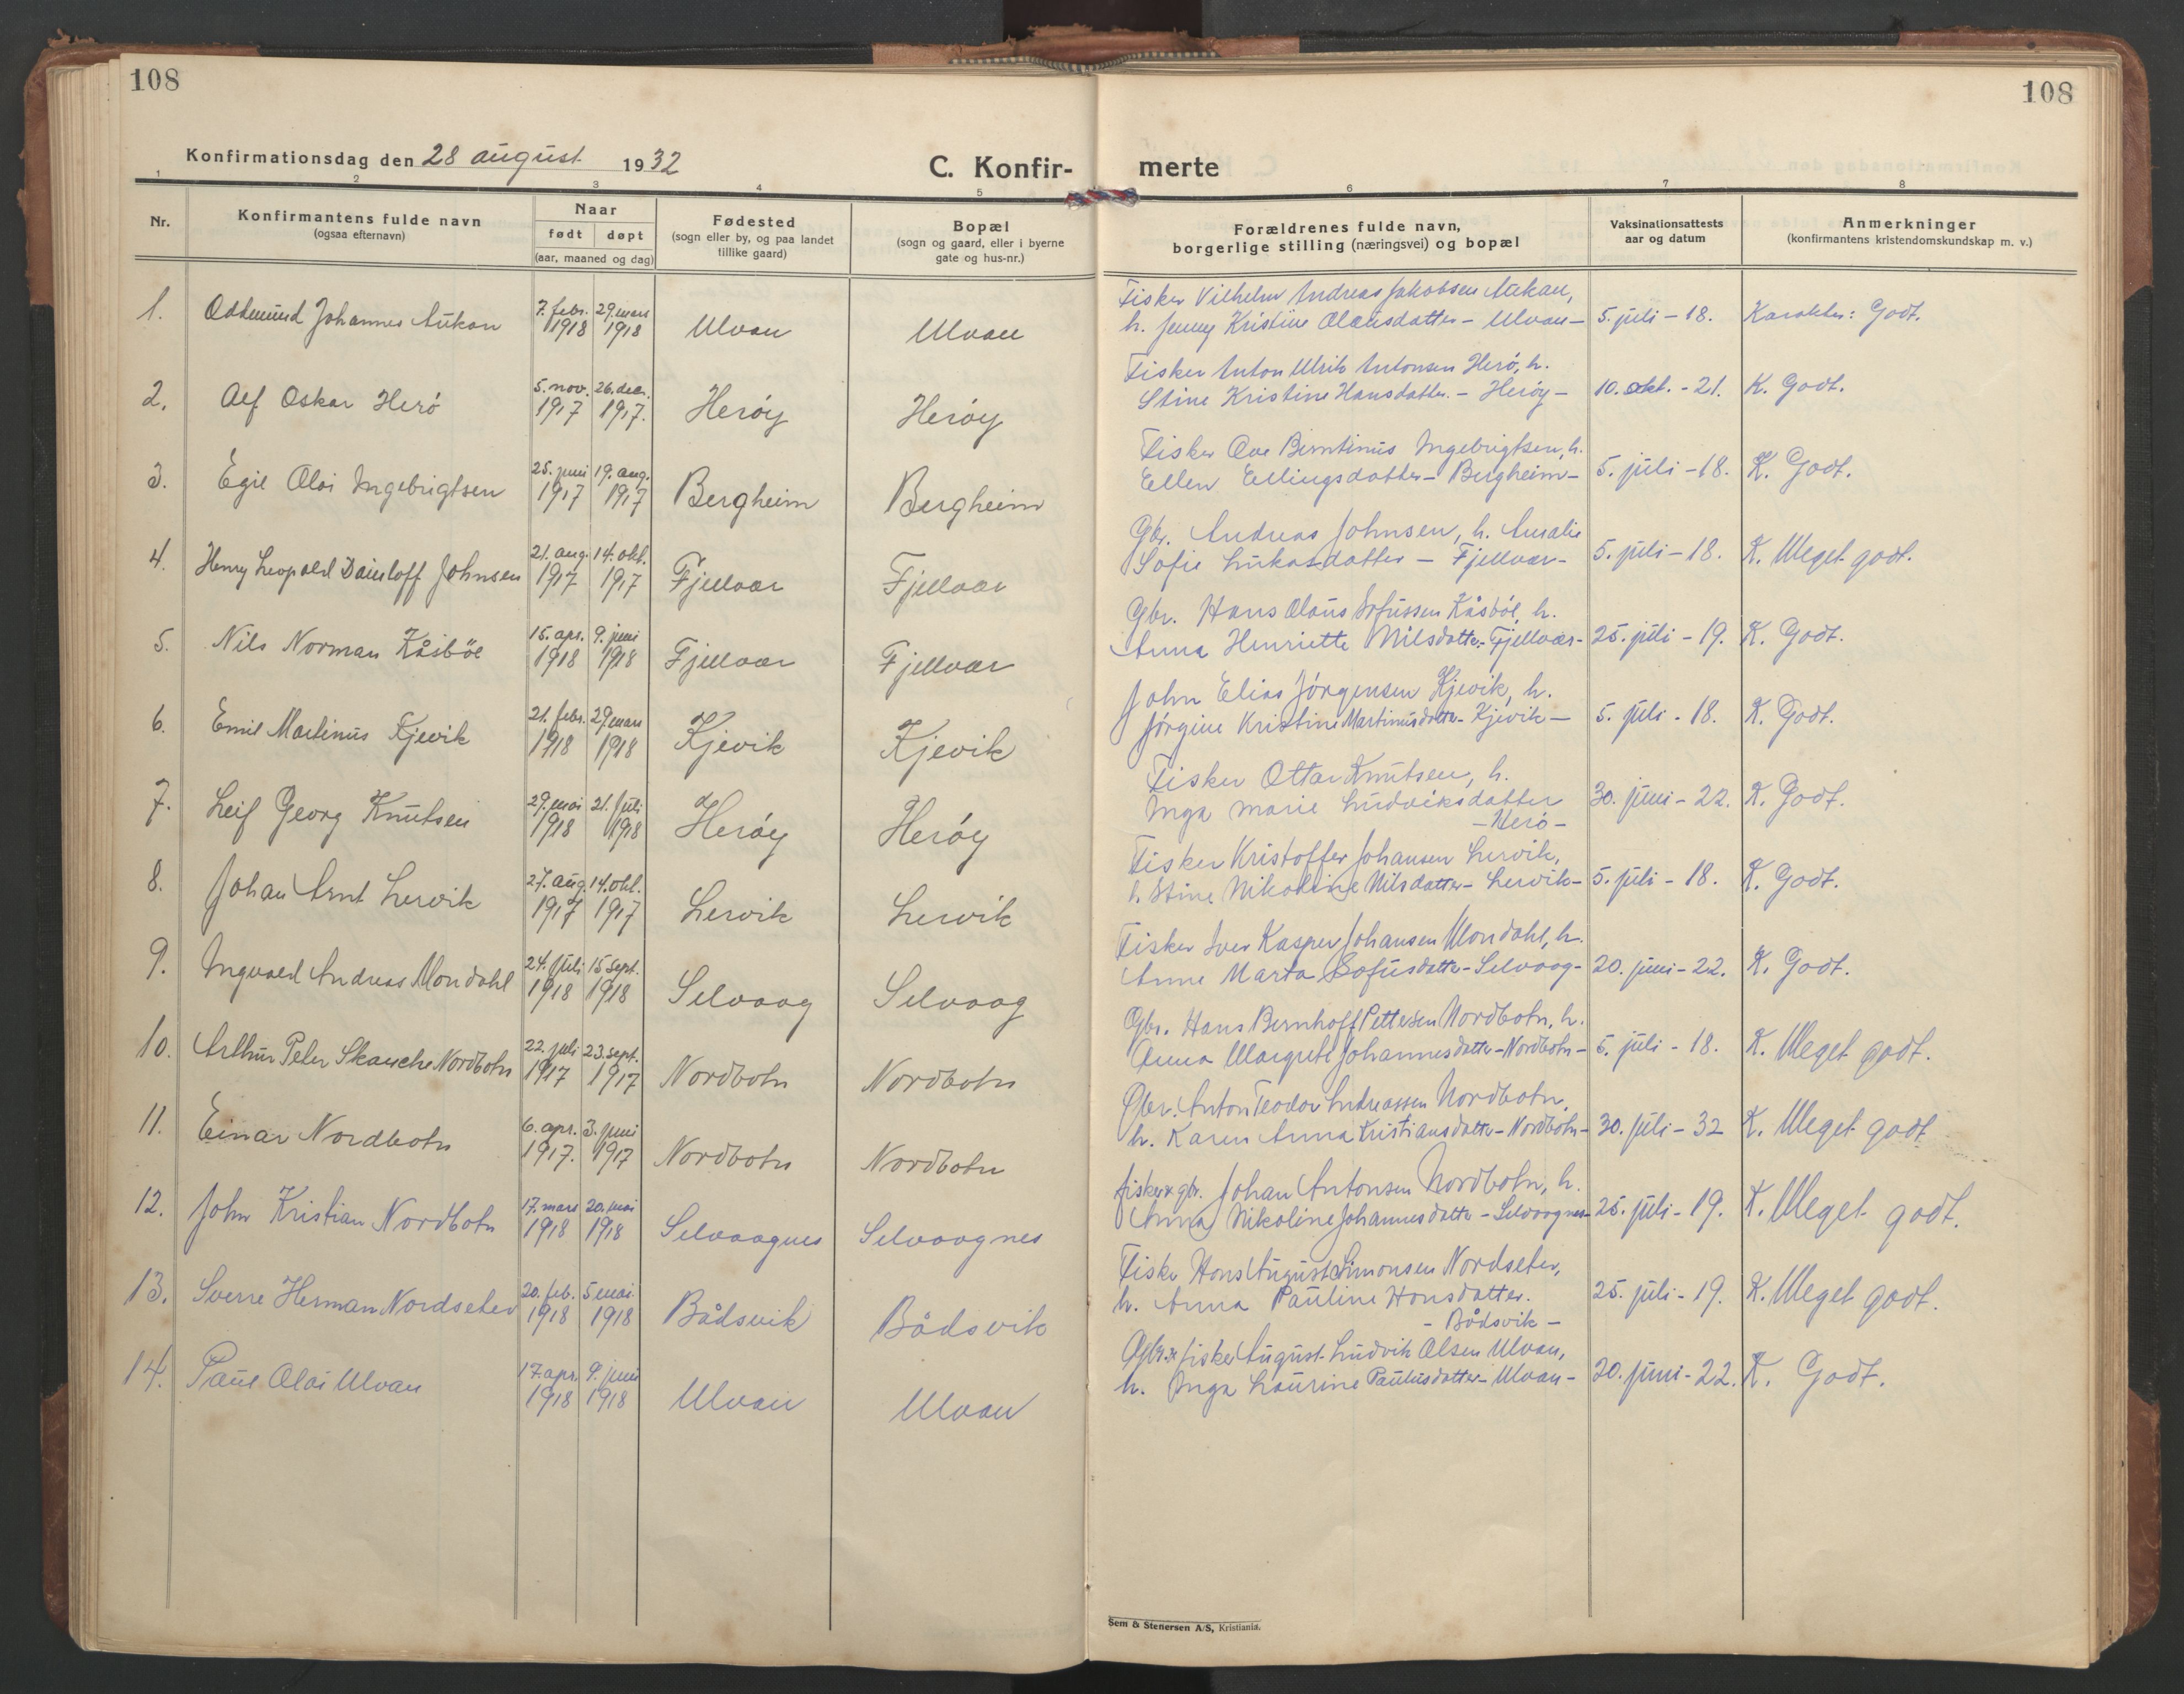 108
108
Konfirmationsdag den 28 august 1932
C. Konfir-
merte
1 2 3 4 5 6 7 8
Nr.
Konfirmantens fulde navn
(ogsaa efternavn)
Naar
født døpt
(aar, maaned og dag)
Fødested
(sogn eller by, og paa landet
tillike gaard)
Bopæl
(sogn og gaard, eller i byerne
gate og hus-nr.)
Forældrenes fulde navn,
borgerlige stilling (næringsvei) og bopæl
Vaksinationsattests
aar og datum
Anmerkninger
(konfirmantens kristendomskundskap m. v.)
1. Oddmund Johannes Aukan 7. febr. 1918 29. mars 1918 Ulvan Ulvan
Fisker Vilhelm Andreas Jakobsen Aukan,
h. Jenny Kristine Olausdatter - Ulvan - 5. juli - 18. Karakter: Godt.
2. Alf Oskar Herö 5. nov. 1917 26. des. 1917. Heröy Heröy
Fisker Anton Ulrik Antonsen Herö, h.
Stine Kristine Hansdatter. - Heröy - 10. okt. - 21. K. Godt.
3. Egil Olai Ingebrigtsen 25. juni 1917 19. aug. 1917 Bergheim Bergheim
Fisker Ove Berntinus Ingebrigtsen, h.
Ellen Ellingsdatter - Bergheim - 5. juli - 18. K. Godt.
4. Henry Leopold Johnsen 21. aug. 1917 14. okt. 1917 Fjellvær Fjellvær
Gbr. Andreas Johnsen, h. Amalie
Sofie Lukasdatter - Fjellvær - 5. juli - 18. K. Meget godt.
5. Nils Norman Kåsböl 15. apr. 1918 9. juni 1918 Fjellvær Fjellvær
Gbr. Hans Olaus Sofussen Kåsböl, h.
Anna Henriette Nilsdatter - Fjellvær - 25. juli - 19. K. Godt.
6. Emil Martinus Kjevik 21. febr. 1918 29. mars 1918 Kjevik Kjevik
John Elias Jörgensen Kjevik, h.
Jörgine Kristine Martinusdatter - Kjevik - 5. juli - 18. K. Godt.
7. Leif Georg Knutsen 29. mai 1918 21. juli 1918 Heröy Heröy
Fisker Ottar Knutsen, h.
Inga Marie Ludviksdatter 30. juni - 22. K. Godt.
- Herö -
8. Johan Arnt Lervik 27. aug. 1917 14. okt. 1917 Lervik Lervik
Fisker Kristoffer Johansen Lervik,
h. Stine Nikoline Nilsdatter - Lervik - 5. juli - 18. K. Godt.
9. Ingvald Andreas Mondahl 24. juli 1918 15 sept. 1918 Selvaag Selvaag
Fisker Iver Kasper Johansen Mondahl, h.
Anne Marta Sofusdatter - Selvaag - 20. juni - 22. K. Godt.
10. Arthur Peter Skanche Nordbotn 22. juli 1917 23. sept. 1917 Nordbotn Nordbotn
Gbr. Hans Bernhoff Pettersen Nordbotn, h.
Anna Margrete Johannesdatter - Nordbotn - 5. juli - 18. K. Meget godt.
11. Einar Nordbotn 6. apr. 1917. 3. juni 1917 Nordbotn Nordbotn
Gbr. Anton Teodor Andreassen Nordbotn,
h. Karen Anna Kristiansdatter - Nordbotn - 30. juli - 32 K. Meget godt.
12. John Kristian Nordbotn 17. mars 1918 20. mai 1918 Selvaagnes Selvaagnes
fisker & gbr. Johan Antonsen Nordbotn, h.
Anna Nikoline Johannesdatter - Selvaagnes - 25. juli - 19. K. Meget godt.
13. Sverre Herman Nordseter 20. feb. 1918 5 mai 1918 Bådsvik Bådsvik
Fisker Hans August Simonsen Nordseter,
h. Anna Pauline Hansdatter. 25. juli - 19. K. Meget godt.
- Bådsvik -
14. Paul Olai Ulvan 17. apr. 1918 9. juni 1918 Ulvan Ulvan
Gbr. & fisker August Ludvik Olsen Ulvan,
h. Inga Laurine Paulusdatter - Ulvan - 20. juni - 22. K. Godt.
Sem & Stenersen A/S, Kristiania.